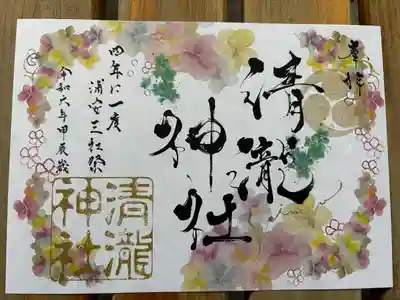 奉拝
清瀧
神社
四年に一度
浦安三社祭
令和六年甲辰歳
清瀧
神社